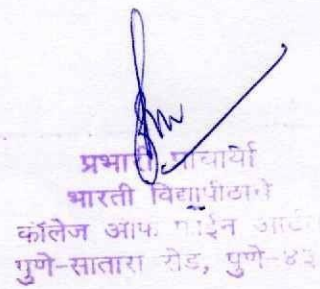 प्रभारी प्राचार्या
भारती विद्यापीठाचे
कॉलेज ऑफ फाईन आर्ट
पुणे-सातारा रोड, पुणे-४३